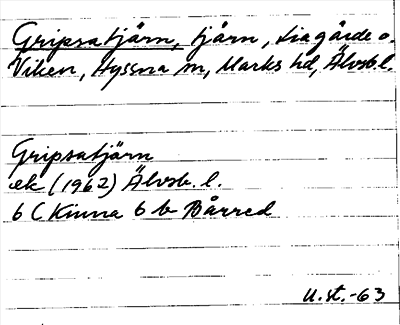 Gripsatjärn, tjärn, Liagärde o.
Viken, Hyssna sn, Marks hd, Älvsb. l.
Gripsatjärn
ek (1962) Älvsb. l.
6 C Kinna 6 b Bårred
U. st. -63